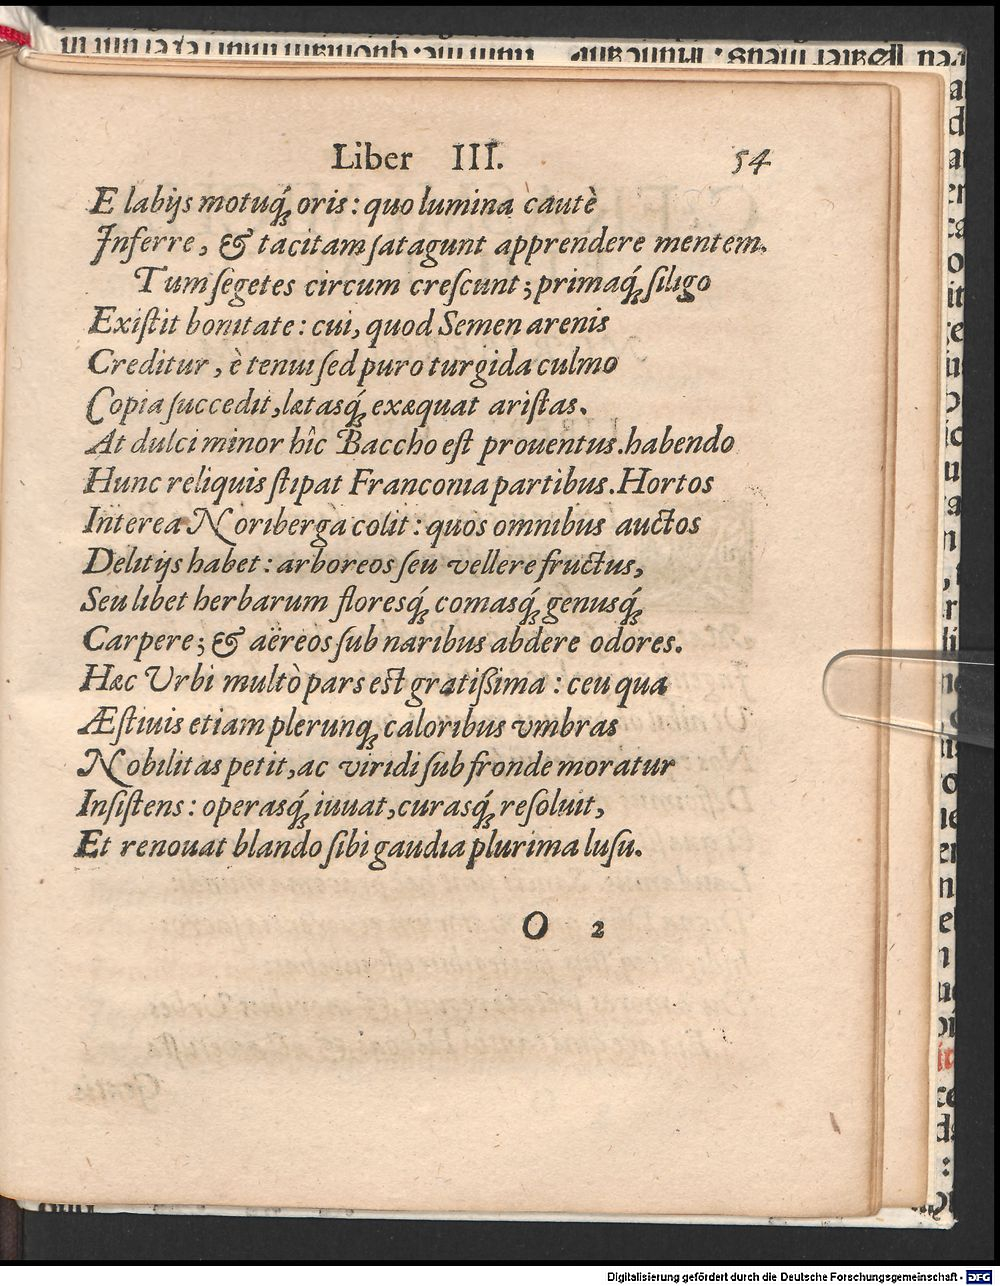 Liber III. 54
E labijs motuq́; oris: quo lumina cautè
Inferre, & tacitam satagunt apprendere mentem.
Tum segetes circum crescunt; primaq́; siligo
Existit bonitate: cui, quod Semen arenis
Creditur, è tenui sed puro turgida culmo
Copia succedit, lætasq́; exæquat aristas.
At dulci minor hîc Baccho est prouentus. habendo
Hunc reliquis stipat Franconia partibus. Hortos
Interea Noriberga colit: quos omnibus auctos
Delitijs habet: arboreos seu vellere fructus,
Seu libet herbarum floresq́; comasq́; genusq́;
Carpere; & aëreos sub naribus abdere odores.
Hæc Vrbi multò pars est gratißima: ceu qua
Æstiuis etiam plerunq; caloribus vmbras
Nobilitas petit, ac viridi sub fronde moratur
Insistens: operasq́; iuuat, curasq́; resoluit,
Et renouat blando sibi gaudia plurima lusu.
O 2
Digitalisierung gefördert durch die Deutsche Forschungsgemeinschaft - DFG